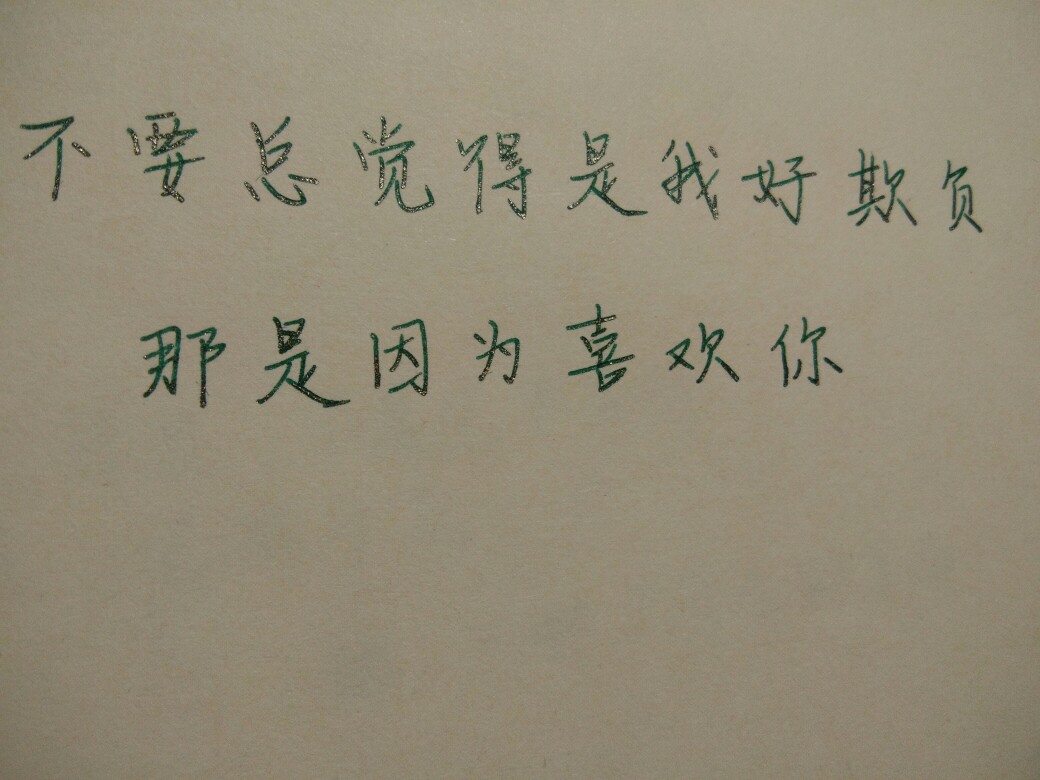 不要总觉得是我好欺负
那是因为喜欢你